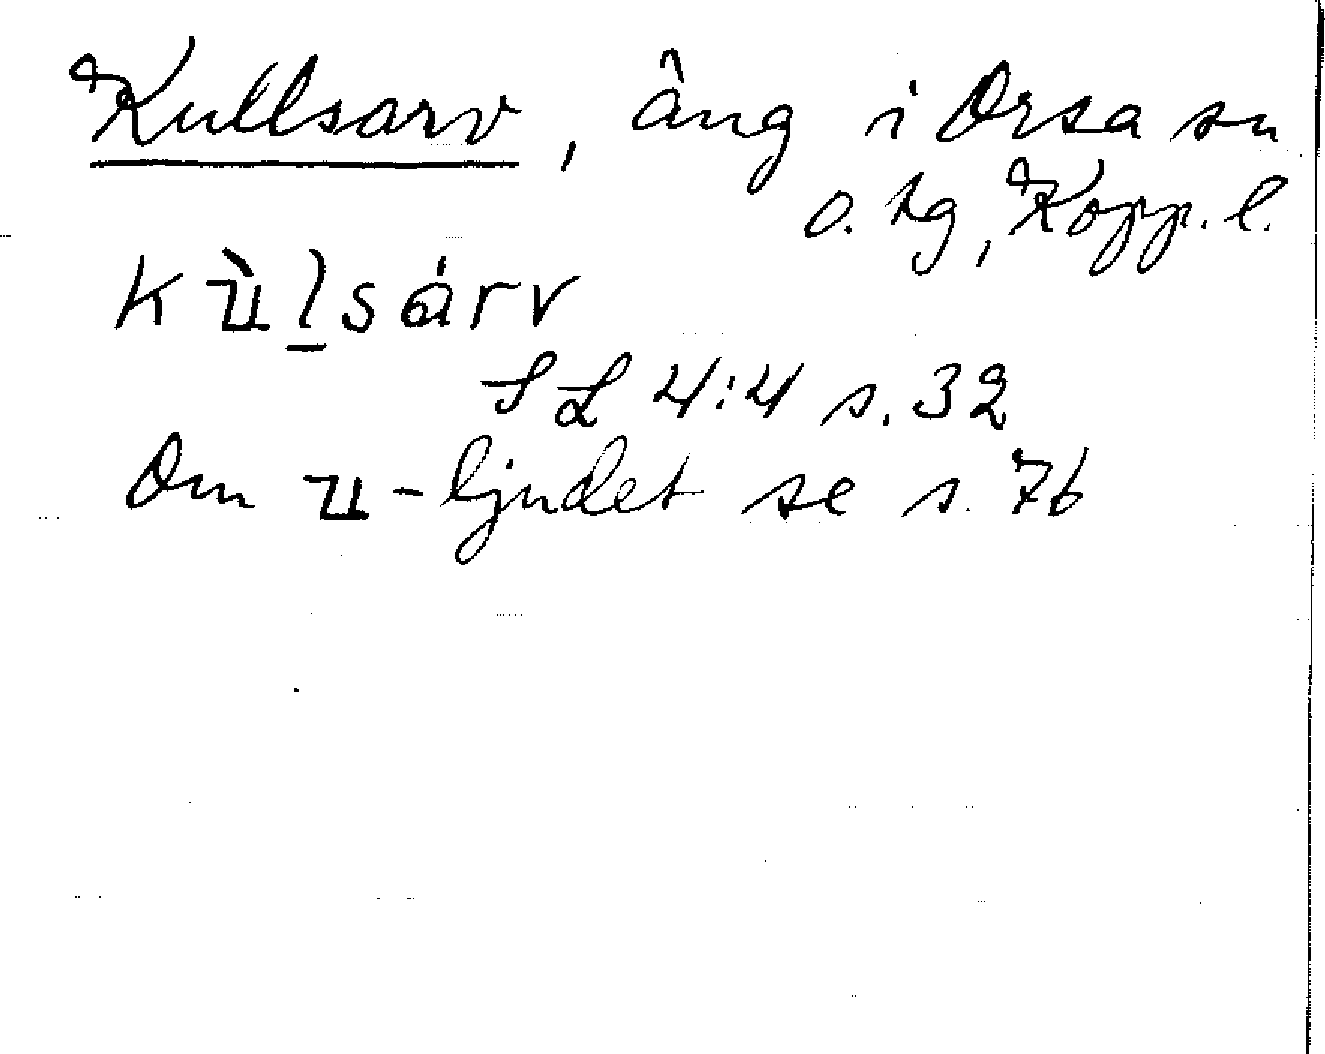 Kullsarv, äng i Orsa sn
o. hg, Kopp. l.
kùl̲sárv
SL 4:4 s. 32
Om u-ljudet se s. 76